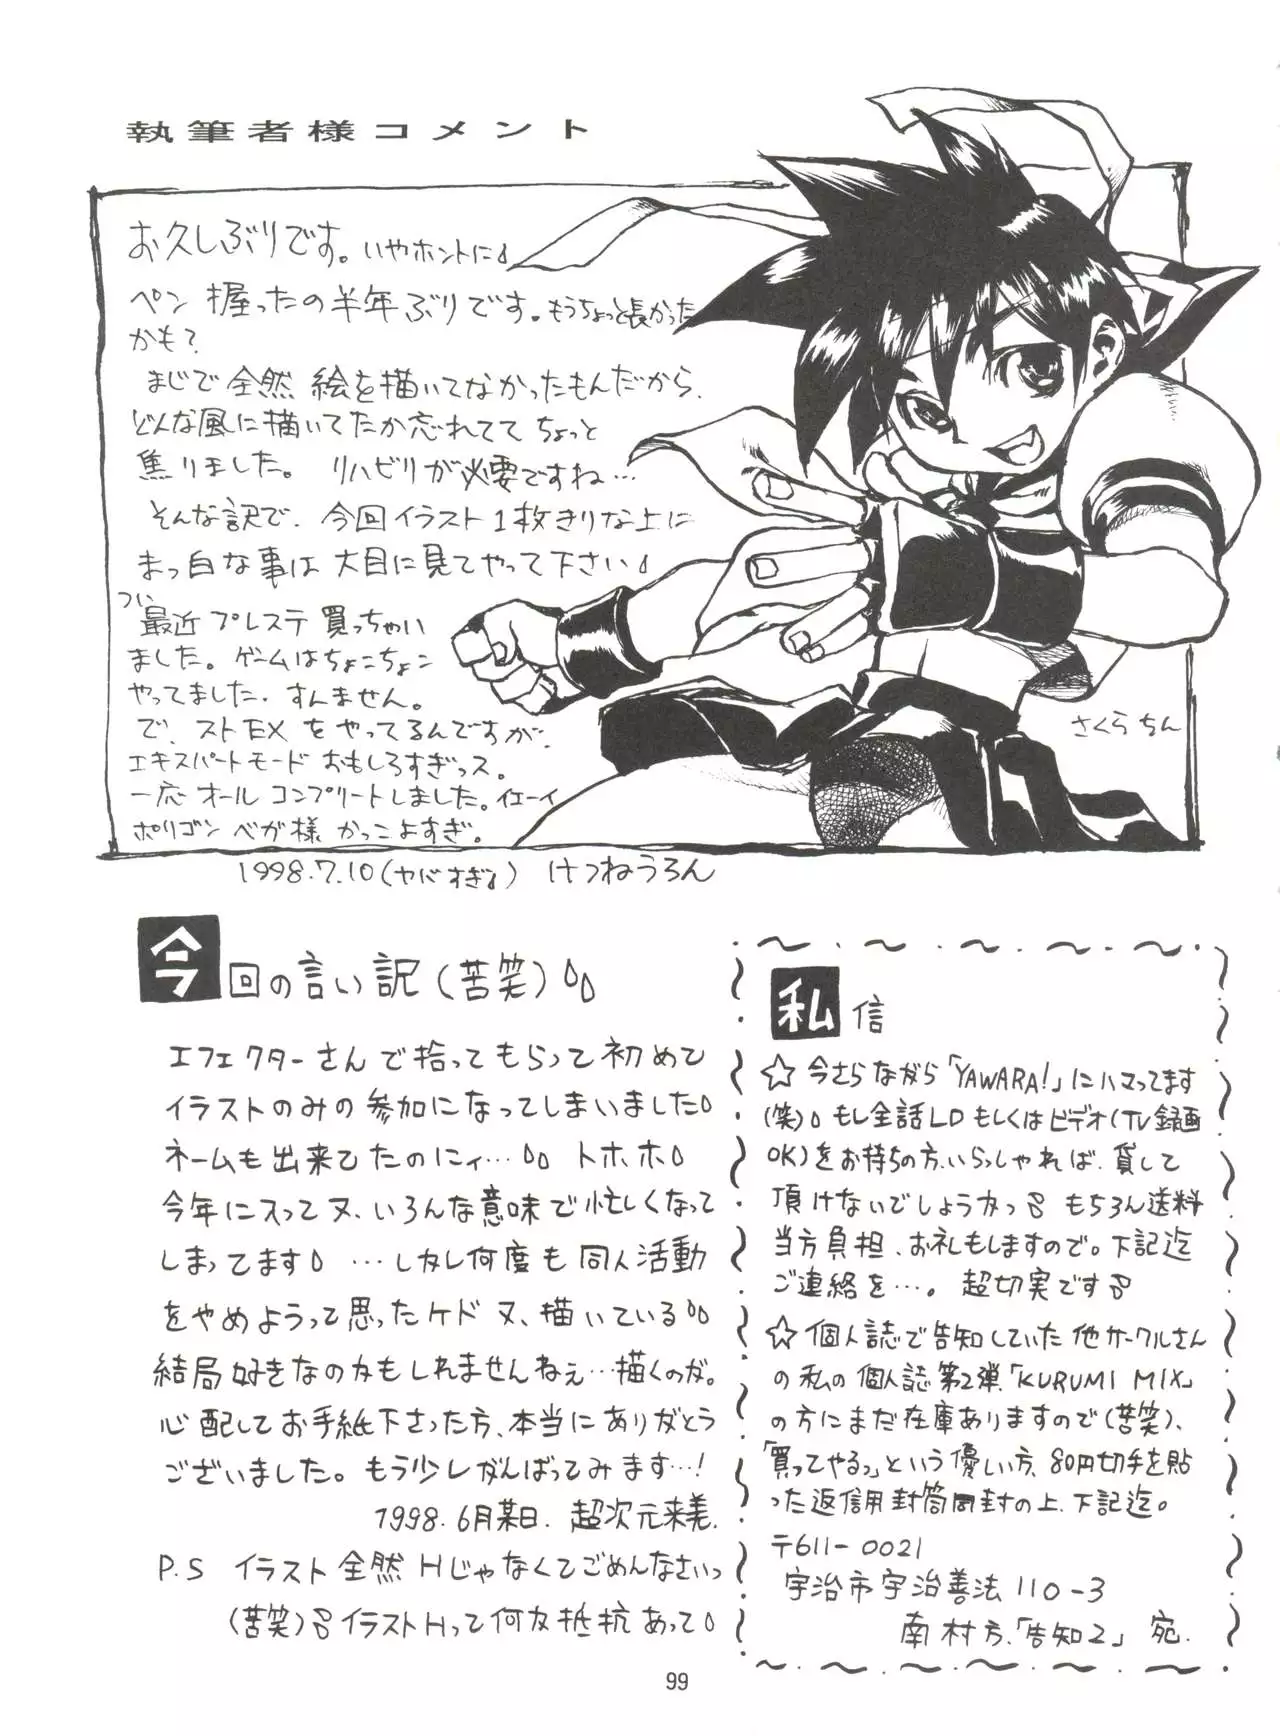 執筆者様コメント
お久しぶりです。いやホントに
ペン握ったの半年ぶりです。もうちょっと長かった
かも?
まじで全然絵を描いてなかったもんだから、
どんな風に描いてたか忘れてて ちょっと
焦りました。 リハビリが必要ですね…
そんな訳で、今回イラスト1枚きりな上に
まっ白な事は大目に見てやって下さい
つい
最近プレステ買っちゃい
ました。ゲームはちょこちょこ
やってました。すんません。
で、ストEXをやってるんですが、
エキスパートモードおもしろすぎっス。
一応オールコンプリートしました。イエーイ
ポリゴンベガ様かっこよすぎ。
さくらちん
1998.7.10(ヤバすぎ) けつねうろん
今回の言い訳(苦笑)
エフェクターさんで拾ってもらって初めて
イラストのみの参加になってしまいました
ネームも出来てたのにィ… トホホ
今年に入って又、いろんな意味で忙しくなって
しまってます …しかし何度も同人活動
をやめようって思ったケド又、描いている
結局好きなのかもしれませんねぇ…描くのが。
心配してお手紙下さった方、本当にありがとう
ございました。もう少しがんばってみます…!
1998.6月某日. 超次元来美.
P.S イラスト全然Hじゃなくてごめんなさいっ
(苦笑) イラストHって何か抵抗あって
私信
☆今さらながら「YAWARA!」にハマってます
(笑)もし全話LDもしくはビデオ(TV録画
OK)をお持ちの方、いらっしゃれば、貸して
頂けないでしょうかっ もちろん送料
当方負担、お礼もしますので。下記迄
ご連絡を…。 超切実です
☆個人誌で告知していた他サークルさん
の私の個人誌第2弾「KURUMI MIX」
の方にまだ在庫ありますので(苦笑)、
「買ってやるっ」という優しい方、80円切手を貼
った返信用封筒同封の上、下記迄。
〒611-0021
宇治市宇治善法110-3
南村方、「告知2」宛.
99